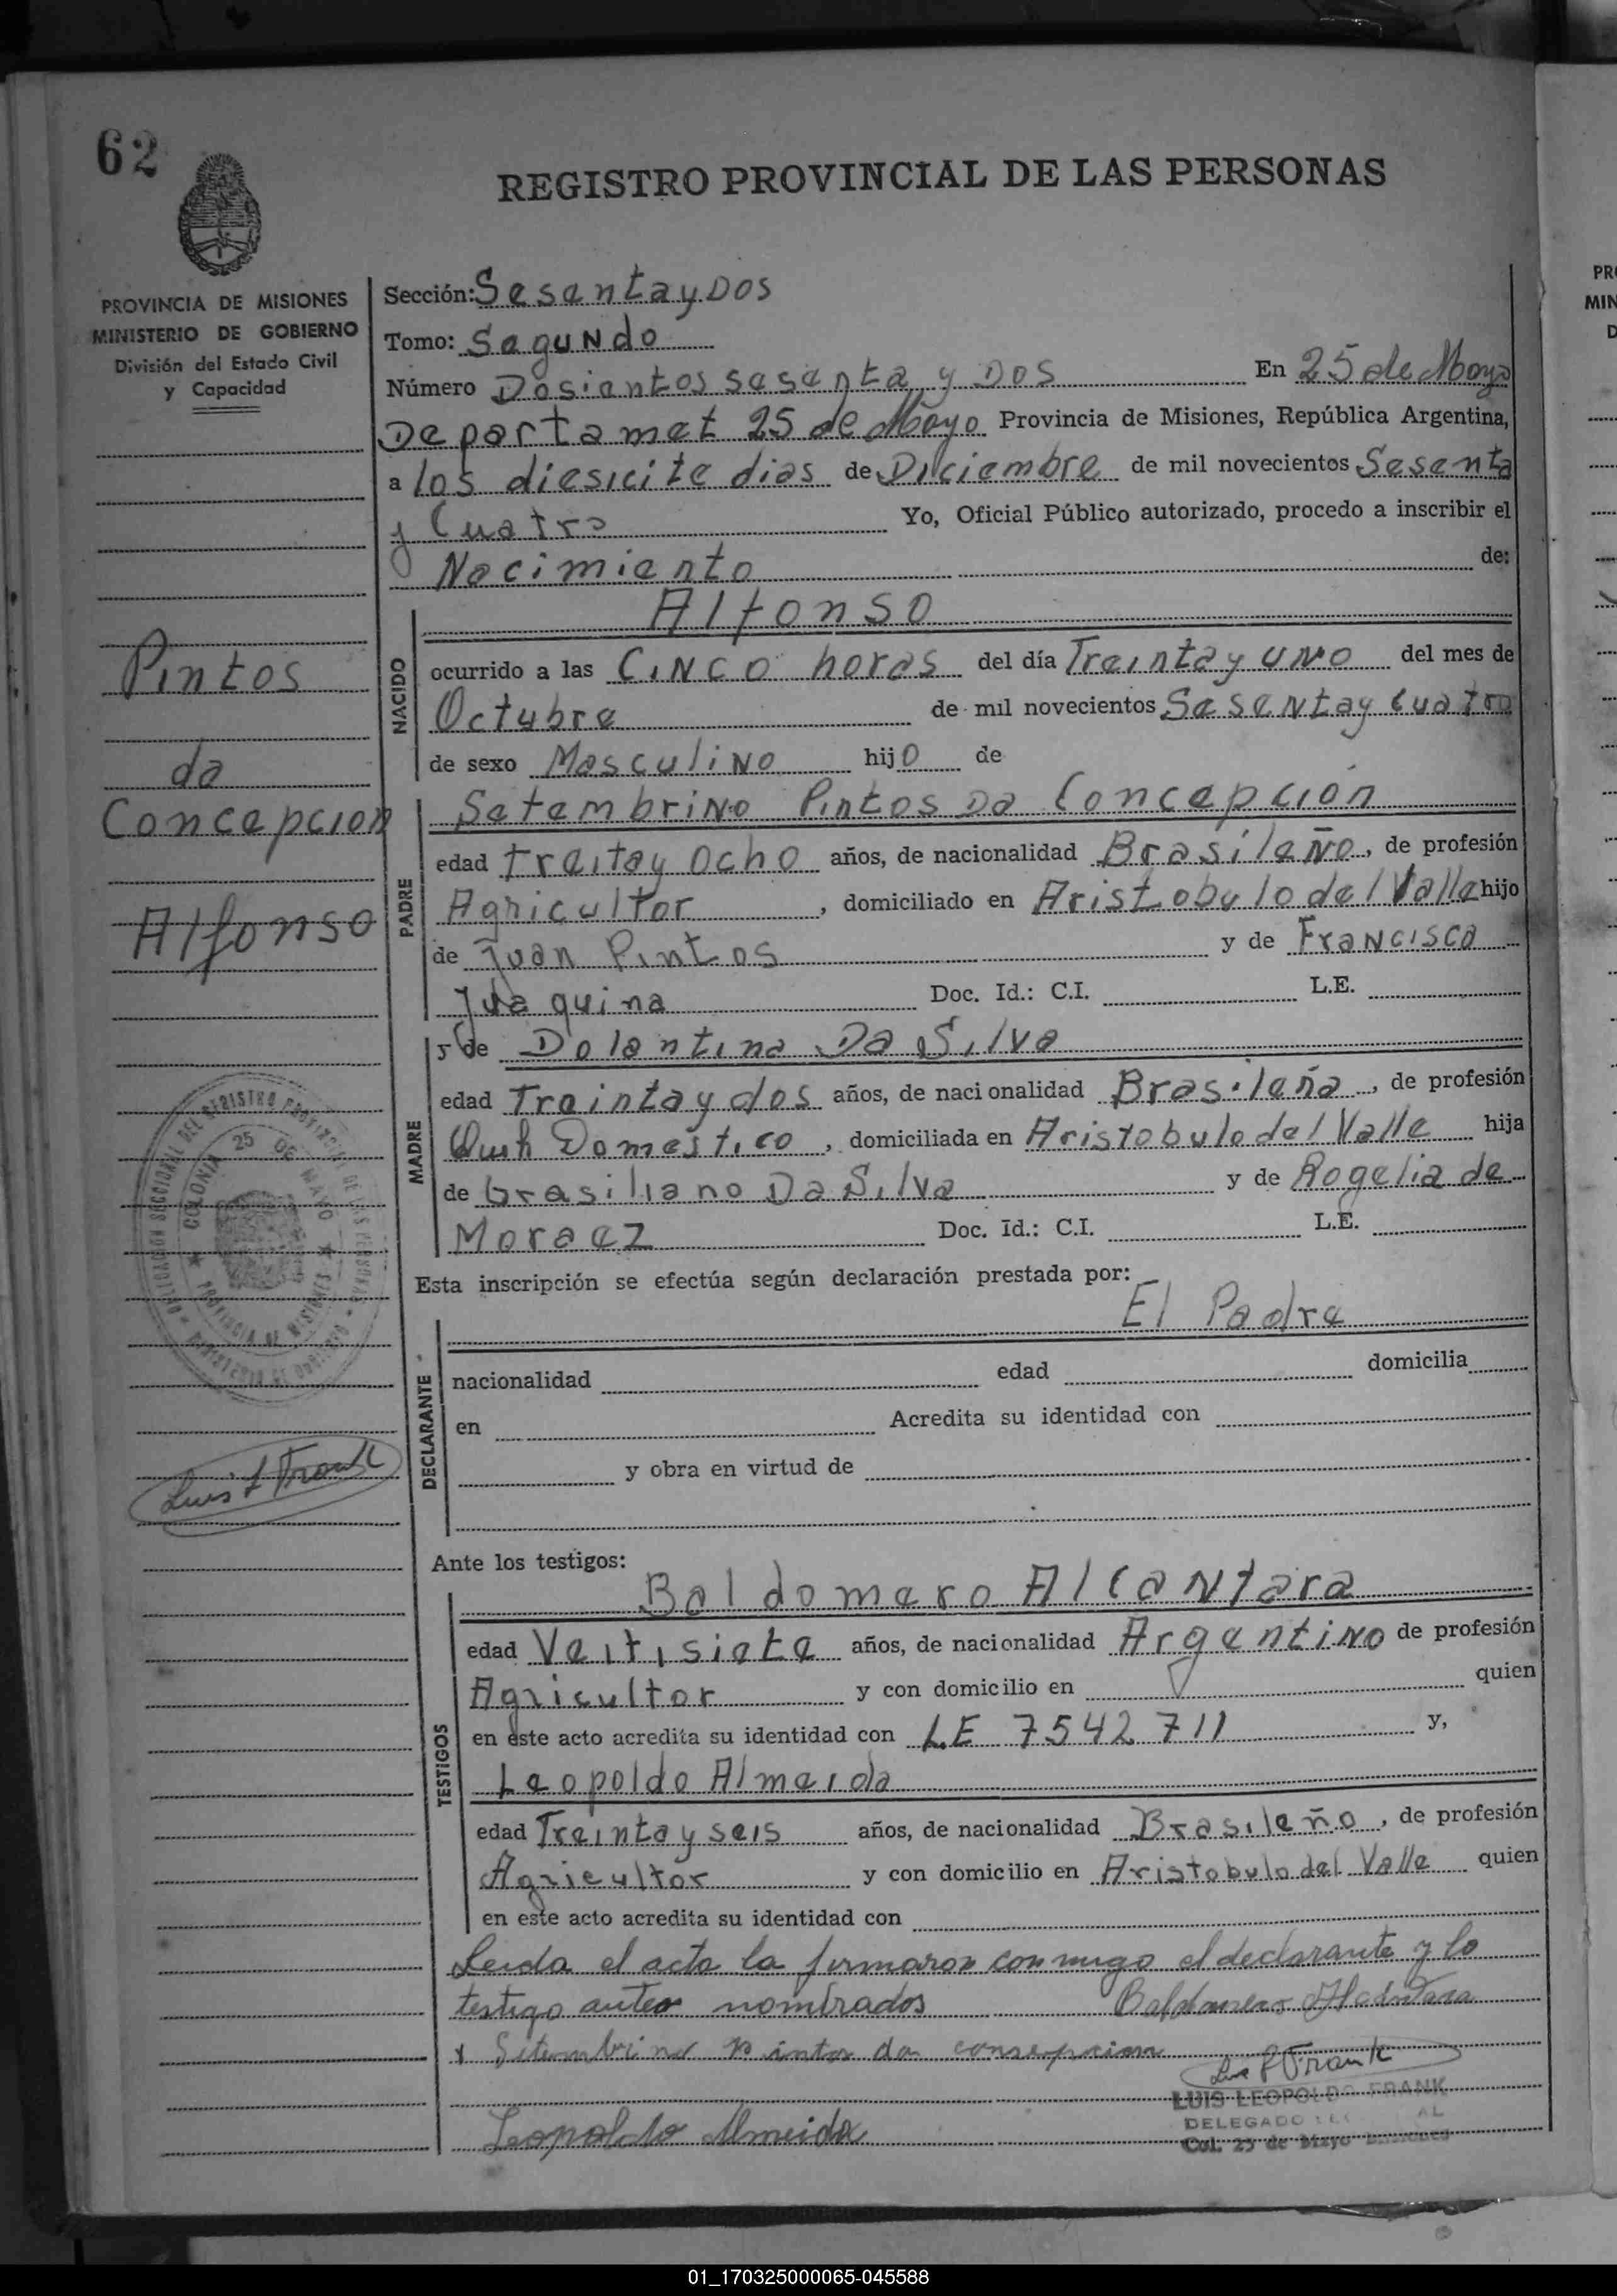 62
REGISTRO PROVINCIAL DE LAS PERSONAS
PROVINCIA DE MISIONES
MINISTERIO DE GOBIERNO
División del Estado Civil
y Capacidad
Pintos
da
Concepcion
Alfonso
Luis L Frank
Sección: Sesenta y Dos
Tomo: Segundo
Número Dosientos sesenta y Dos En 25 de Mayo
Departamet 25 de Mayo Provincia de Misiones, República Argentina,
a los diesicite dias de Diciembre de mil novecientos Sesenta
y Cuatro Yo, Oficial Público autorizado, procedo a inscribir el
Nacimiento de:
Alfonso
NACIDO
ocurrido a las Cinco horas del día Treinta y uno del mes de
Octubre de mil novecientos Sesenta y Cuatro
de sexo Masculino hijo de
PADRE
Setembrino Pintos Da Concepcion
edad treitay ocho años, de nacionalidad Brasileño, de profesión
Agricultor, domiciliado en Aristobulo del Valle hijo
de Juan Pintos y de Francisca
Juaquina Doc. Id.: C.I. L.E.
MADRE
y de Dolentina Da Silva
edad Treinta y dos años, de nacionalidad Brasileña, de profesión
Domestico, domiciliada en Aristobulo del Valle hija
de Grasiliano Da Silva y de Rogelia de
Moraez Doc. Id.: C.I. L.E.
Esta inscripción se efectúa según declaración prestada por:
El Padre
DECLARANTE
nacionalidad edad domicilia
en Acredita su identidad con
y obra en virtud de
Ante los testigos:
TESTIGOS
Baldomero Alcantara
edad Veitisiete años, de nacionalidad Argentino de profesión
Agricultor y con domicilio en quien
en este acto acredita su identidad con L.E 7542711 y,
Leopoldo Almeida
edad Treinta y seis años, de nacionalidad Brasileño, de profesión
Agricultor y con domicilio en Aristobulo del Valle quien
en este acto acredita su identidad con
Leida el acta la firmaron conmigo el declarante y lo
testigo antes nombrados Baldomero Alcantara
x Setembrino Pinto da consepcion
Luis L Frank
LUIS LEOPOLDO FRANK
DELEGADO
Col. 25 de Mayo Misiones
Leopoldo Almeida
COLONIA 25 DE MAYO
PROVINCIA DE MISIONES
01_170325000065-045588